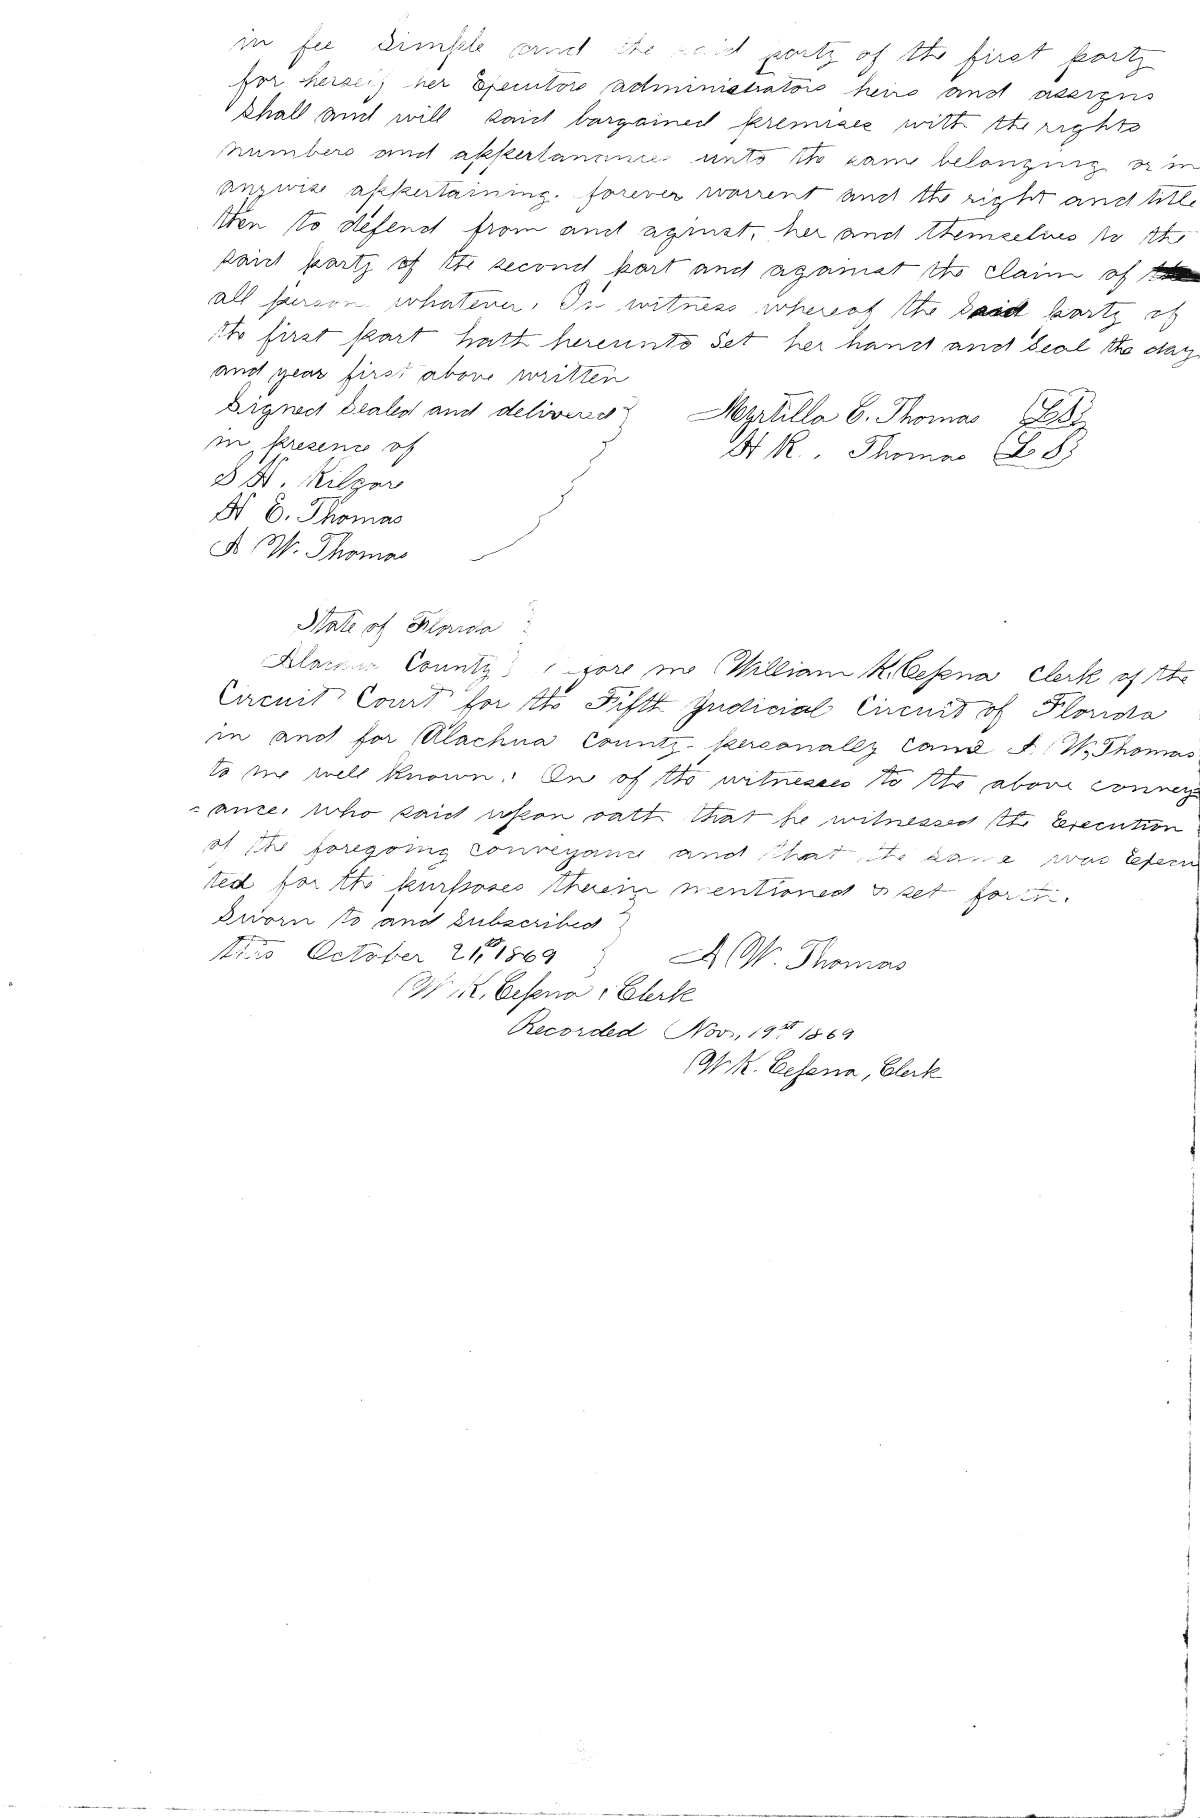 in fee Simple and the said party of the first party
for herself her Executors administrators heirs and assigns
Shall and will said bargained premises with the rights
numbers and appertanance unto the same belonging or in
anywise appertaining. forever warrent and the right and title
then to defend from and aginst, her and themselves to the
said party of the second part and against the claim of
all person whatever. In witness whereof the Said party of
the first part hath hereunto Set her hand and Seal the day
and year first above written
Signed Sealed and delivered } Myrtilla E. Thomas (LS)
in presence of H R. Thomas (L S)
S H. Kilgore
H E. Thomas
A W. Thomas
State of Florida }
Alachua County } Before me William K. Cessna Clerk of the
Circuit Court for the Fifth Judicial Circuit of Florida
in and for Alachua County personally came A. W. Thomas
to me well known. One of the witnesses to the above convey
=ance. who said upon oath that he witnessed the Execution
of the foregoing conveyance and that the same was Execu
ted for the purposes therein mentioned & set forth.
Sworn to and Subscribed }
this October 21st 1869 } A W. Thomas
W K. Cessna, Clerk
Recorded Nov, 19st 1869
W K. Cessna, Clerk